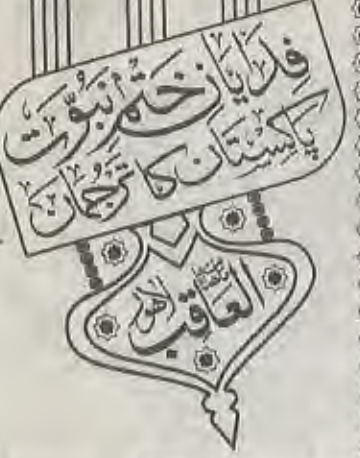 فدایانِ ختمِ نبوّت
پاکِستان کا ترجمان
العاقب لاہور